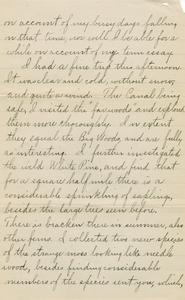 on account of my busy days falling
in that time, nor will I be able for a
while on account of my term essay.
I had a fine trip this afternoon.
It was clear and cold, without snow,
and quite a wind. The Canal being
safe, I visited the "far woods" and explored
them more thoroughly. In extent
they equal the Big Woods, and are fully
as interesting. I further investigated
the wild White Pine, and find that
for a square half mile there is a
considerable sprinkling of saplings,
besides the large trees seen before.
There is bracken there in summer, also
other ferns. I collected two new species
of the strange moss looking like needle
wood, besides finding considerable
numbers of the species sent you, which,